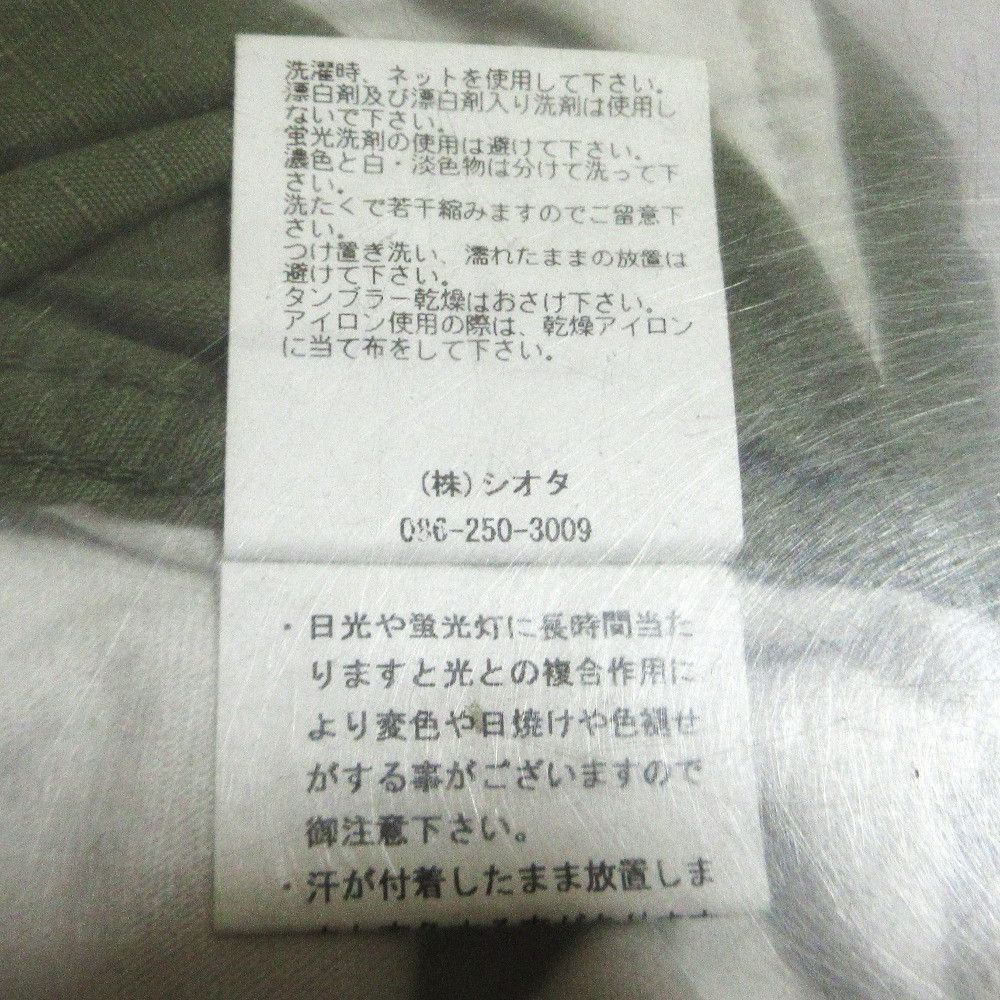 洗濯時、ネットを使用して下さい。
漂白剤及び漂白剤入り洗剤は使用し
ないで下さい。
蛍光洗剤の使用は避けて下さい。
濃色と白・淡色物は分けて洗って下
さい。
洗たくで若干縮みますのでご留意下
さい。
つけ置き洗い、濡れたままの放置は
避けて下さい。
タンブラー乾燥はおさけ下さい。
アイロン使用の際は、乾燥アイロン
に当て布をして下さい。
(株)シオタ
086-250-3009
・日光や蛍光灯に長時間当た
りますと光との複合作用に
より変色や日焼けや色褪せ
がする事がございますので
御注意下さい。
・汗が付着したまま放置しま